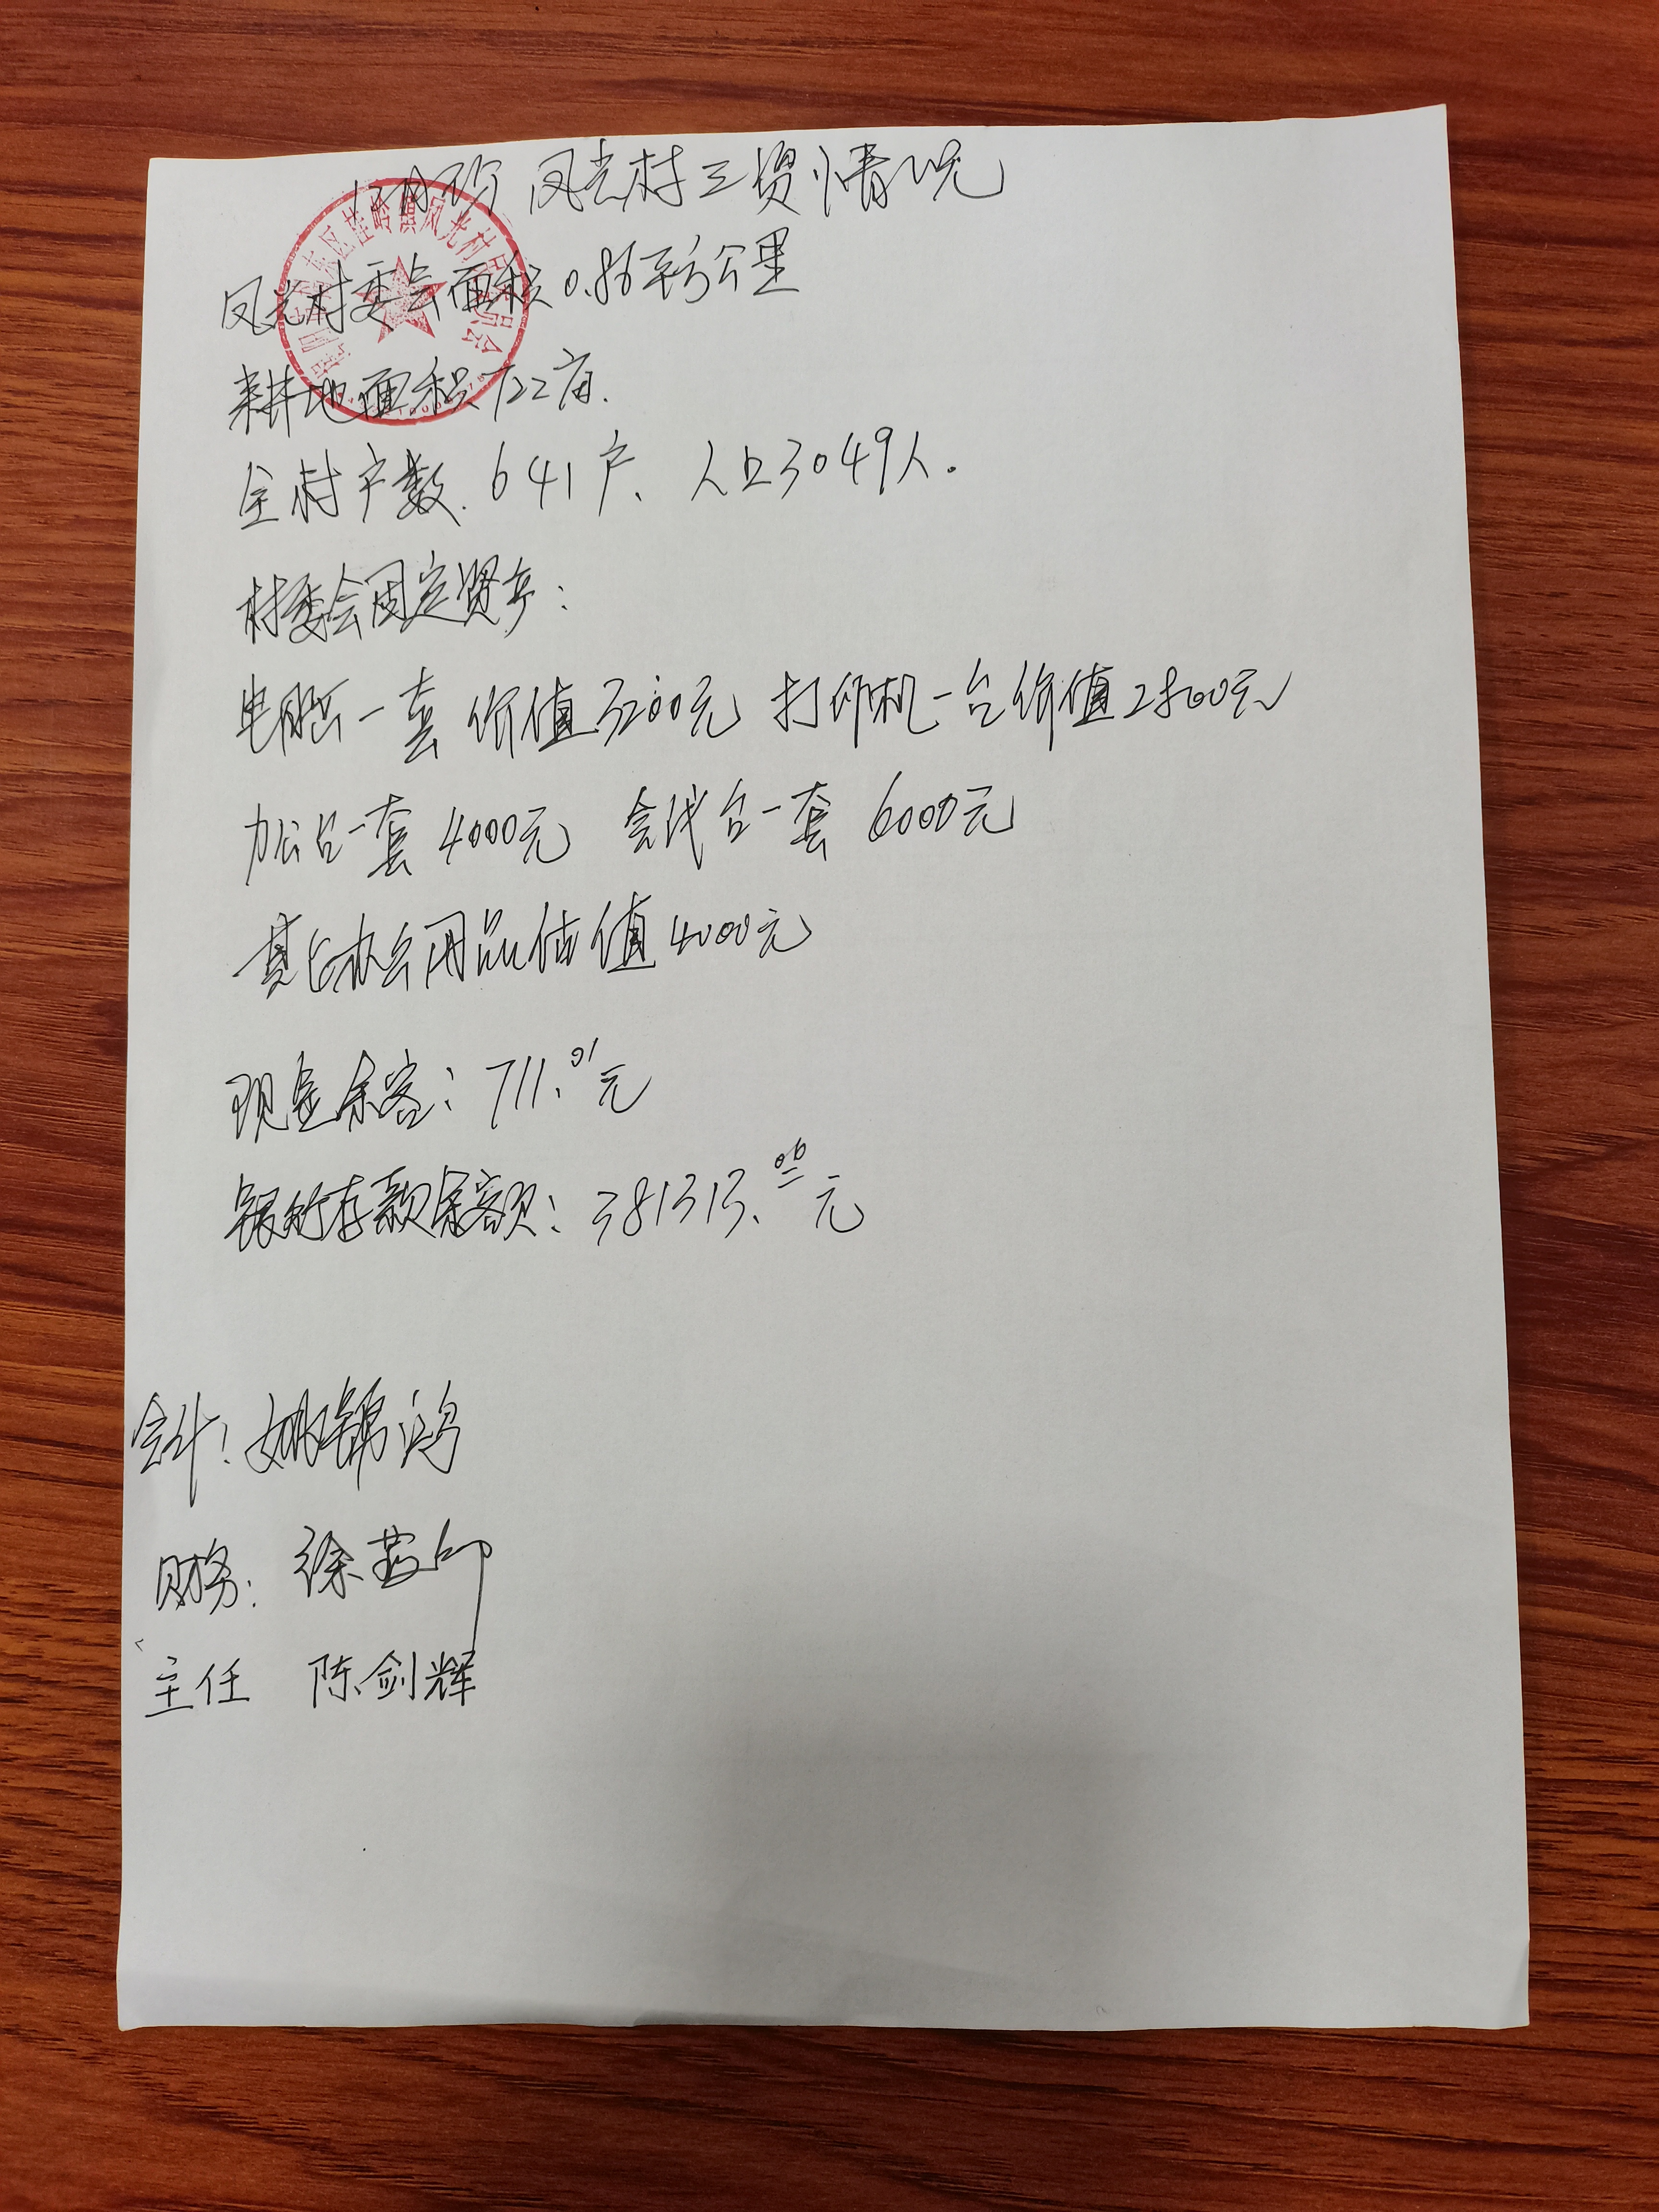 12月份 凤光村三资情况
凤光村委会面积0.86平方公里
耕地面积722亩.
全村户数.641户、人口3049人.
村委会固定资产:
电脑一套 价值3200元 打印机一台价值2800元
办公台一套 4000元 会议台一套 6000元
其它办公用品估值4000元
现金余额: 711.01元
银行存款余额: 381313.06元
会计: 姚锦鸿
财务: 徐
主任 陈剑辉
东区桂岭镇凤光村民委员会